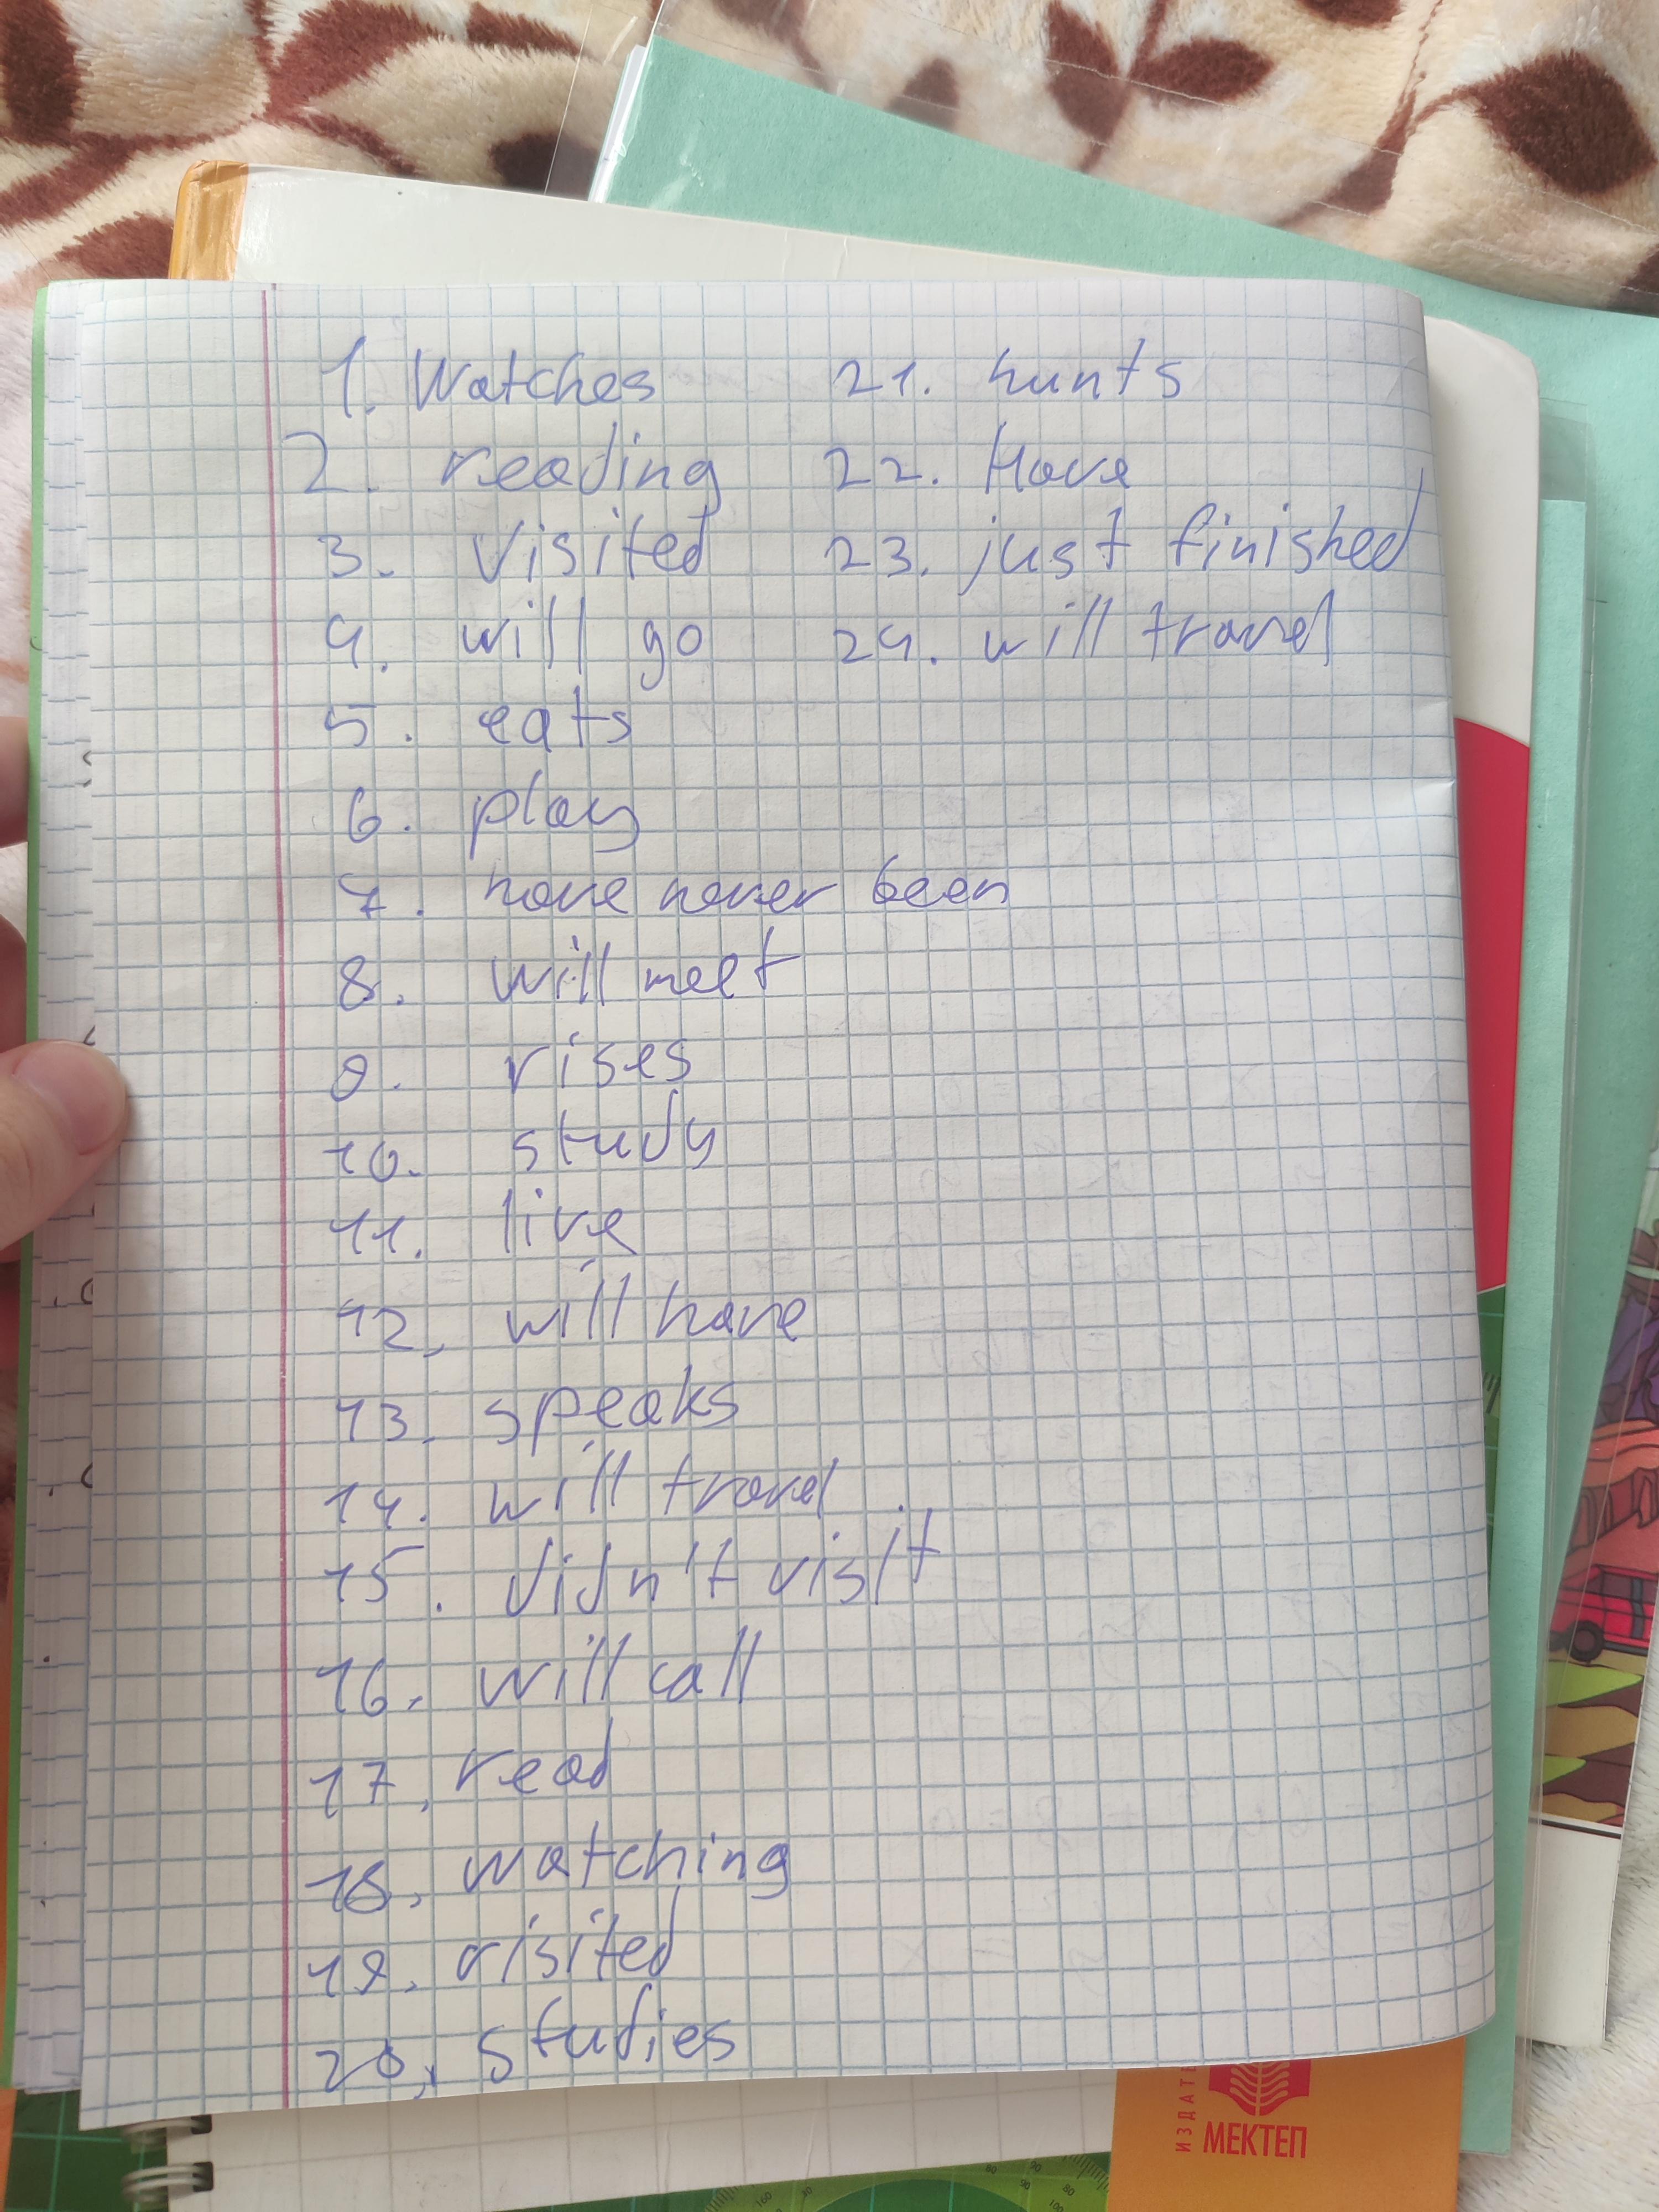 1. Watches
2. reading
3. visited
4. will go
5. eats
6. play
7. have never been
8. will meet
9. rises
10. study
11. live
12. will have
13. speaks
14. will travel
15. didn't visit
16. will call
17. read
18. watching
19. visited
20. studies
21. hunts
22. Have
23. just finished
24. will travel
ИЗДАТЕ
МЕКТЕП